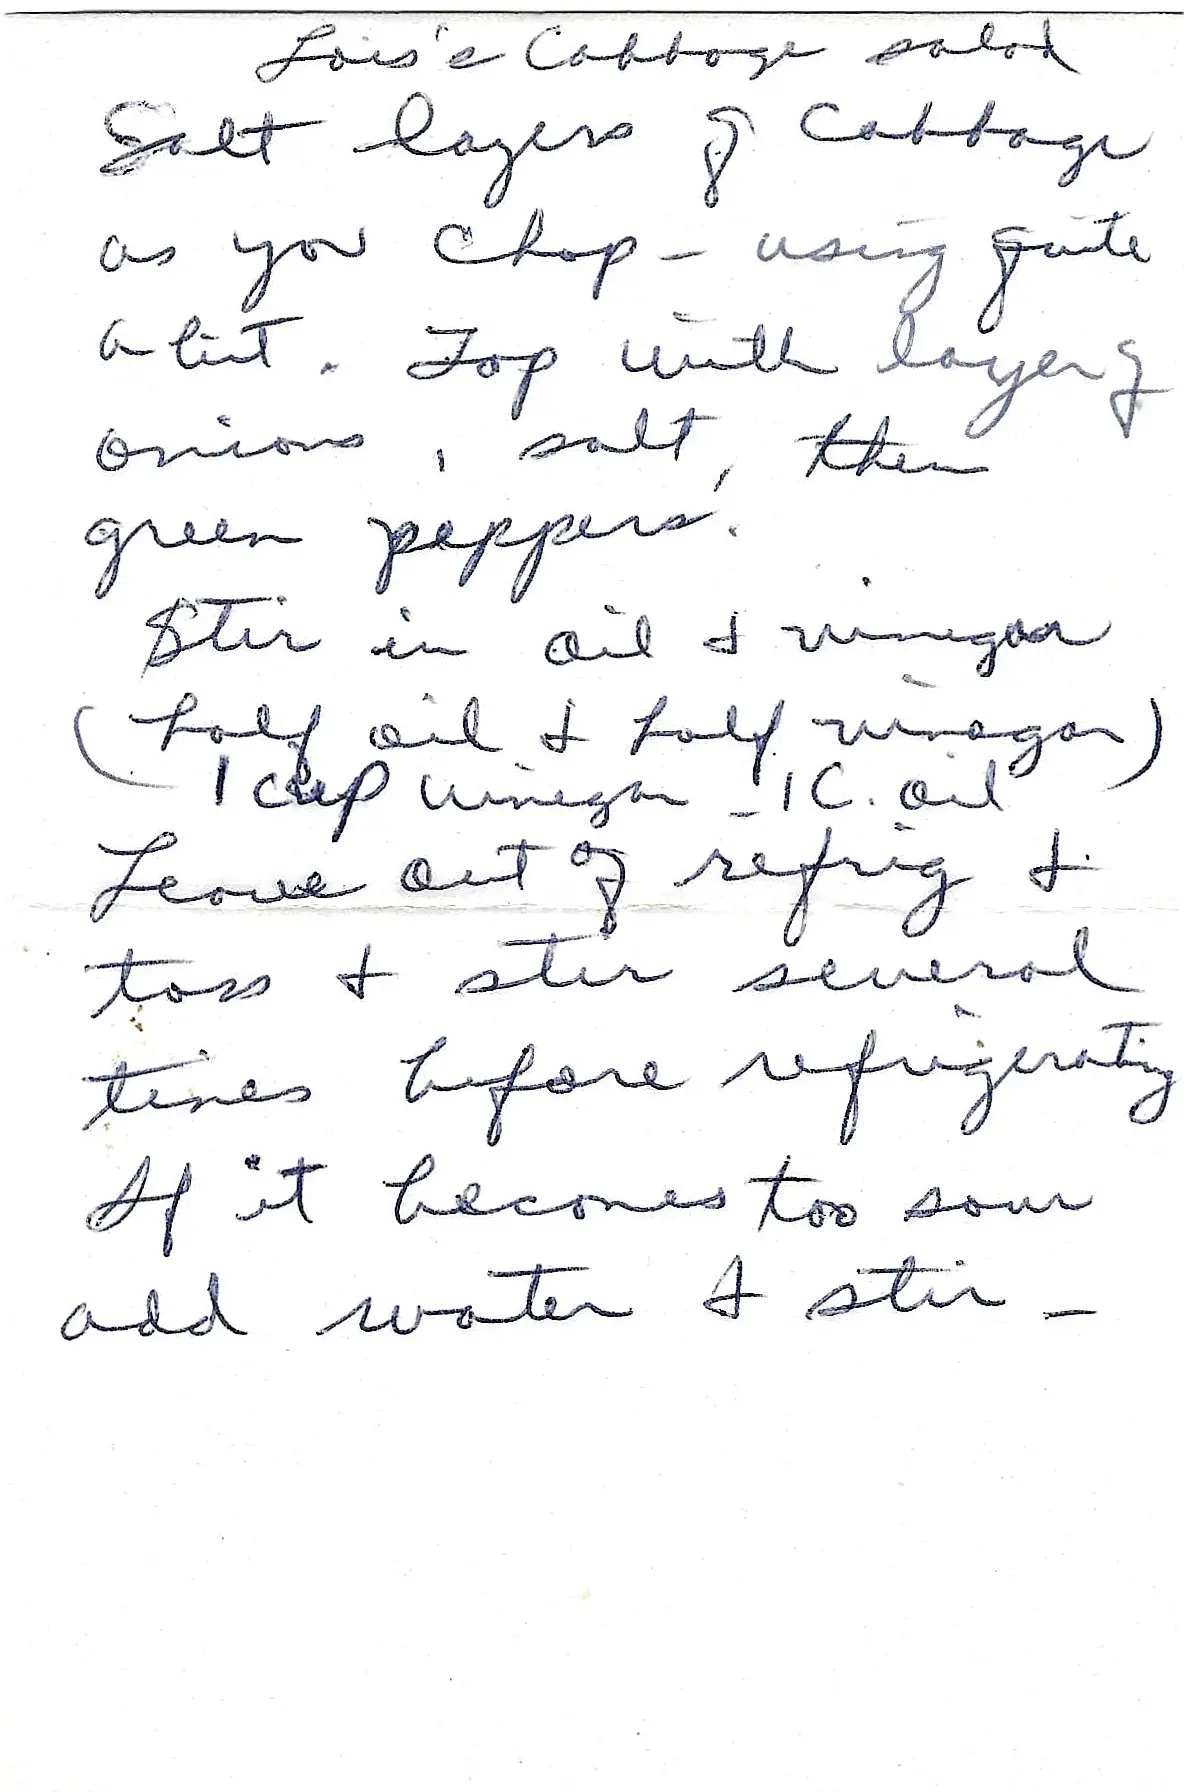 Lois's Cabbage salad
Salt layers of Cabbage
as you chop - using quite
a bit. Top with layer of
onions, salt, then
green peppers.
Stir in oil & vinegar
(half oil & half vinegar)
1 cup vinegar - 1 C. oil
Leave out of refrig &
toss & stir several
times before refrigerating
If it becomes too sour
add water & stir -